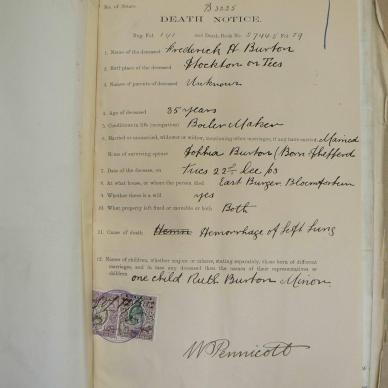 No. of Estate. B 3035
DEATH NOTICE.
Reg. Fol. 141 and Death Book No. 57445 Fol 29
1. Name of the deceased Frederick H Burton
2. Birthplace of the deceased Stockton on Tees
3. Names of parents of deceased Unknown
4. Age of deceased 35 years
5. Conditions in life (occupation) Boiler Maker
6. Married or unmarried, widower or widow, mentioning other marriages, if any have existed Married
Name of surviving spouse Sophia Burton (Born Shepperd
7. Date of the decease, on Tues 22nd Dec 03
8. At what house, or where the person died East Burger Bloemfontein
9. Whether there is a will yes
10. What property left fixed or movable or both Both
11. Cause of death Hemorrhage of left Lung
12. Names of children, whether majors or minors, stating separately, those born of different
marriages, and in case any deceased then the names of their representatives or
children. one child Ruth Burton Minor
W Pennicott